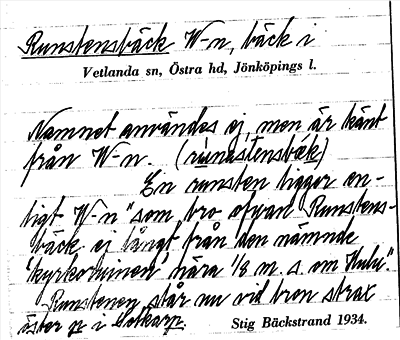 Runstensbäck W-n, bäck i
Vetlanda sn, Östra hd, Jönköpings l.
Namnet användes ej, men är känt
från W-n. (runastensbäk)
En runsten ligger en-
ligt W-n "som bro öfver Runstens-
bäck ej långt från den nämnde
'kyrkoruinen' nära 1/8 m. s. om Hult".
Runstenen står nu vid bron strax
öster
Stig Bäckstrand 1934.